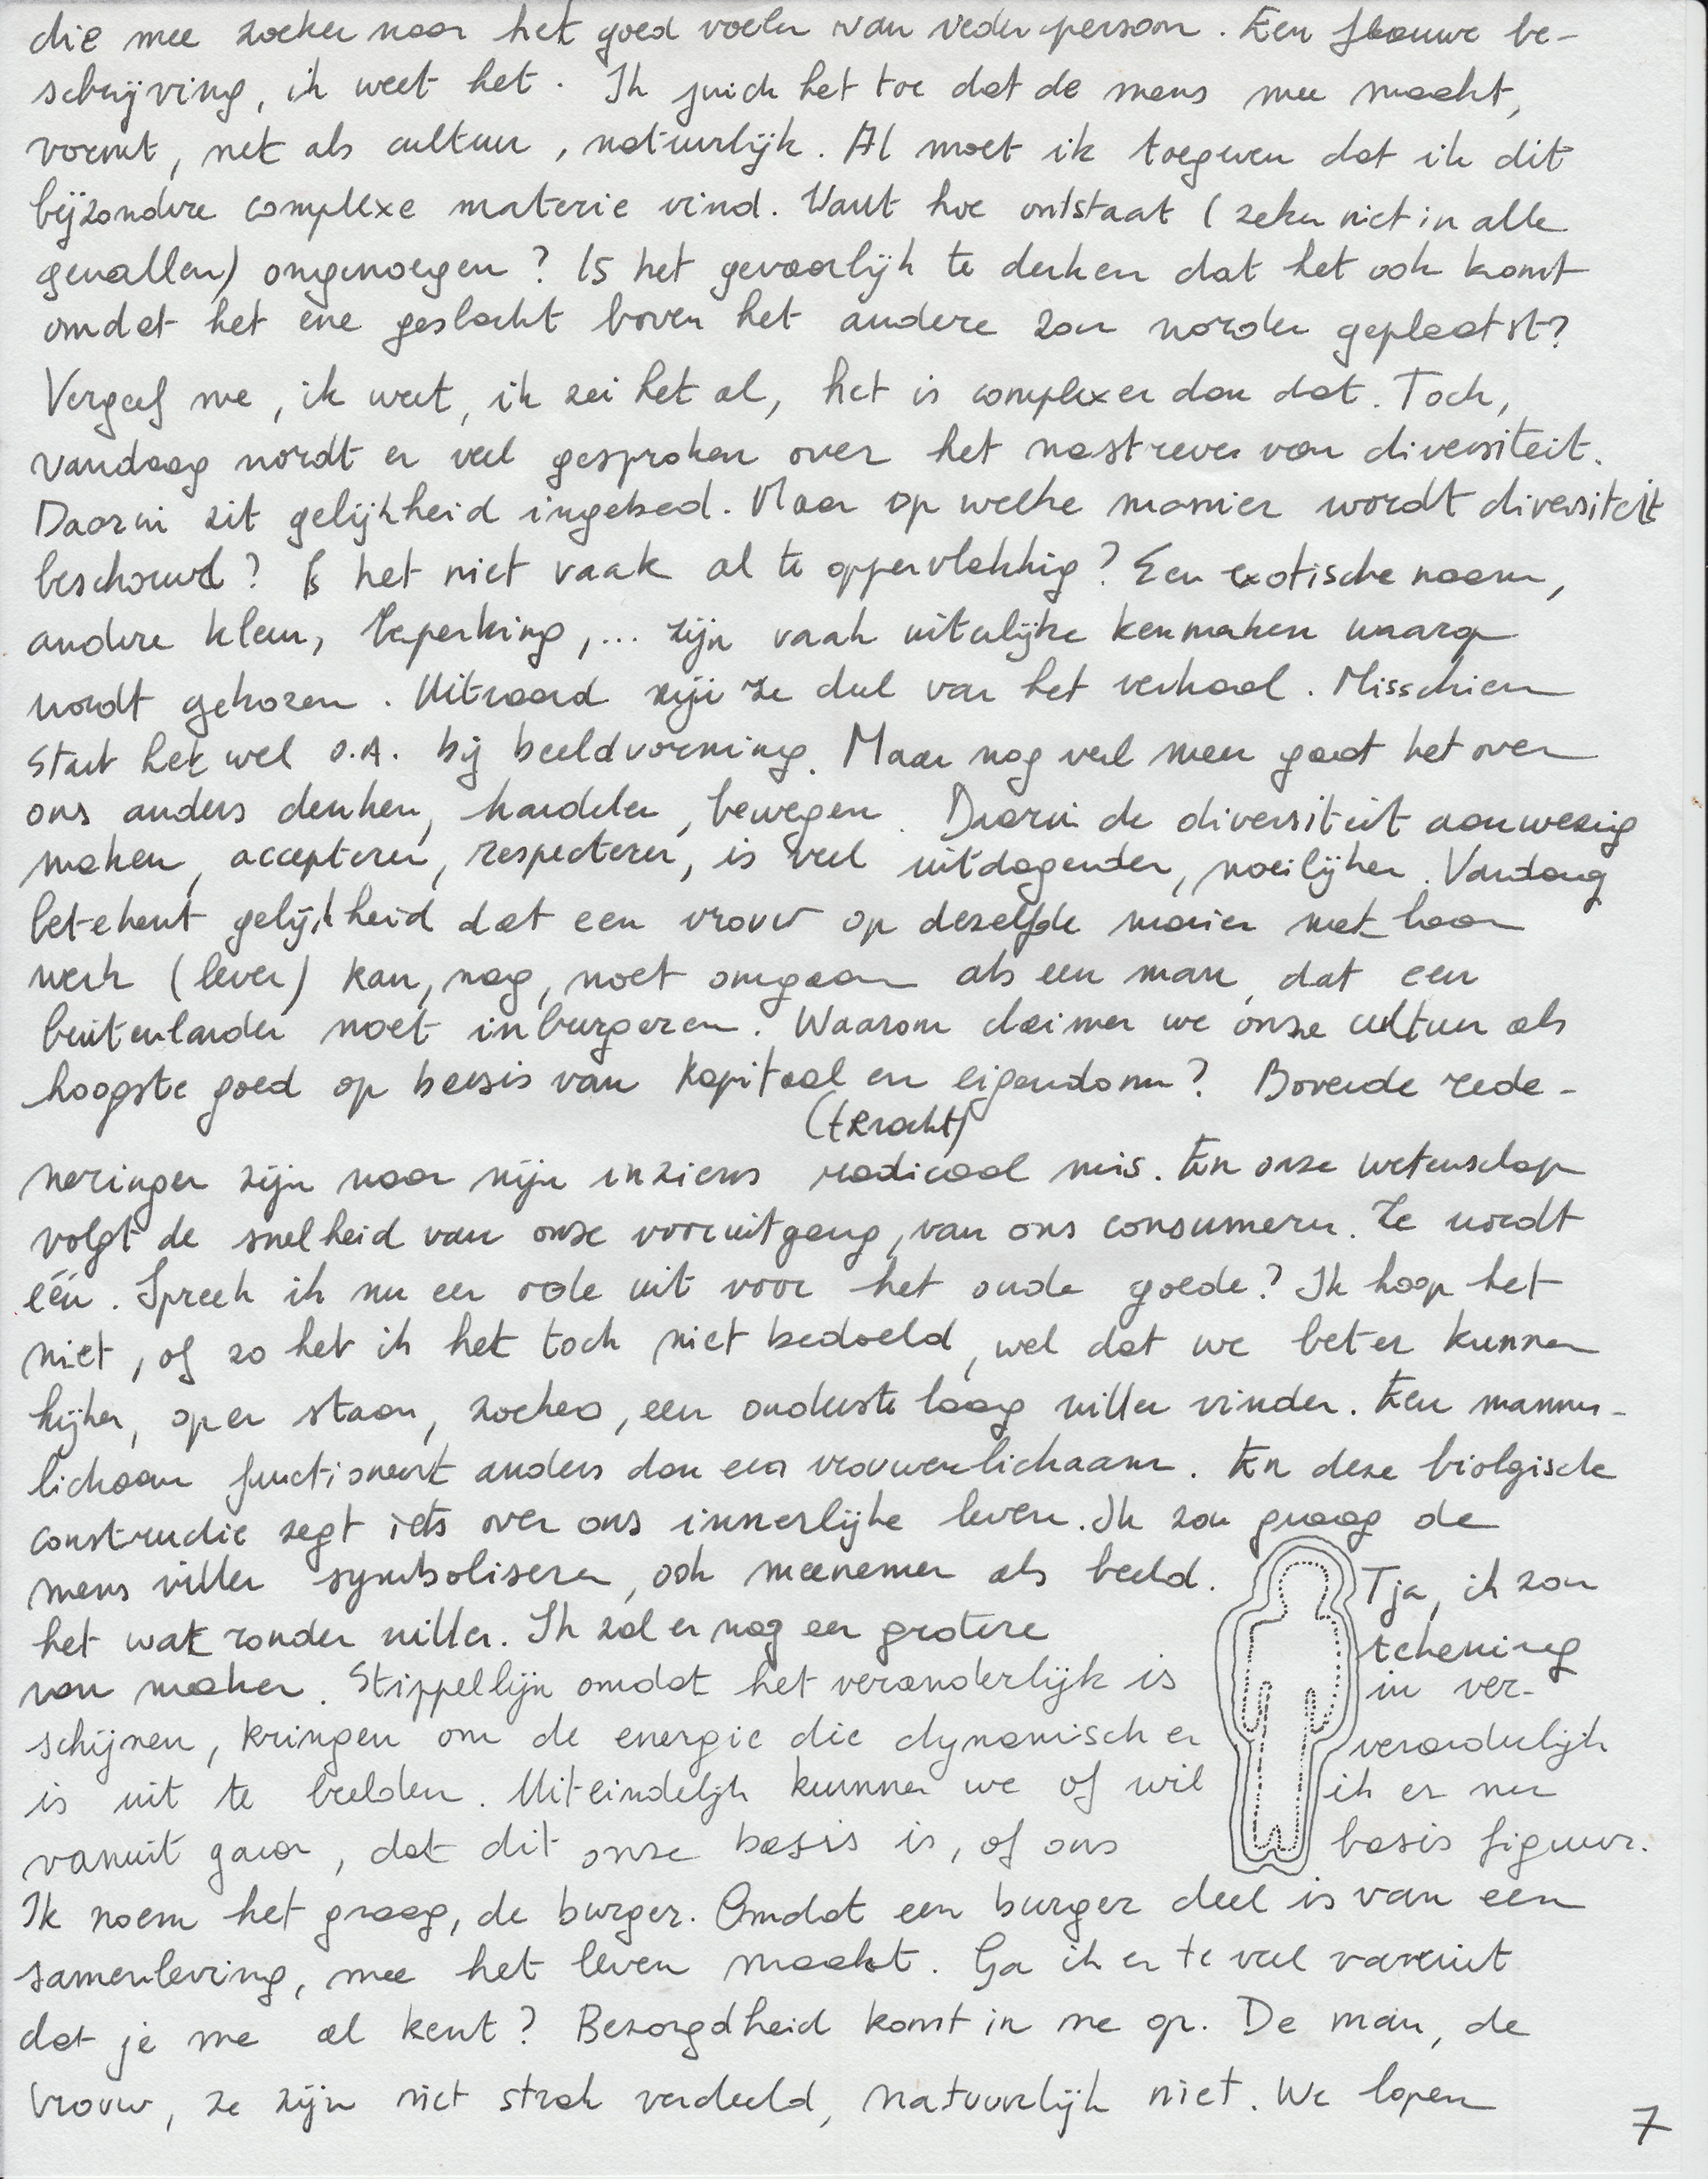 die mee zoeken naar het goed voelen van ieder persoon. Een flauwe be-
schrijving, ik weet het. Ik juich het toe dat de mens mee maakt,
vormt, net als cultuur, natuurlijk. Al moet ik toegeven dat ik dit
bijzondere complexe materie vind. Want hoe ontstaat (zeker niet in alle
gevallen) ongenoegen? Is het gevaarlijk te denken dat het ook komt
omdat het ene geslacht boven het andere zou worden geplaatst?
Vergeef me, ik weet, ik zei het al, het is complexer dan dat. Toch,
vandaag wordt er veel gesproken over het nastreven van diversiteit.
Daarin zit gelijkheid ingebed. Maar op welke manier wordt diversiteit
beschouwd? Is het niet vaak al te oppervlakkig? Een exotische naam,
andere kleur, beperking, ... zijn vaak uiterlijke kenmerken waarop
wordt gekozen. Uiteraard zijn ze deel van het verhaal. Misschien
start het wel o.a. bij beeldvorming. Maar nog veel meer gaat het over
ons anders denken, handelen, bewegen. Daarin de diversiteit aanwezig
maken, accepteren, respecteren, is veel uitdagender, moeilijker. Vandaag
betekent gelijkheid dat een vrouw op dezelfde manier met haar
werk (leven) kan, mag, moet omgaan als een man, dat een
buitenlander moet inburgeren. Waarom claimen we onze cultuur als
hoogste goed op basis van kapitaal en eigendom? Bovende rede-
(kracht)
neringen zijn naar mijn inziens radicaal mis. En onze wetenschap
volgt de snelheid van onze vooruitgang, van ons consumeren. Ze wordt
één. Spreek ik nu een ode uit voor het oude goede? Ik hoop het
niet, of zo heb ik het toch niet bedoeld, wel dat we beter kunnen
kijken, open staan, zoeken, een onderste laag willen vinden. Een mannen-
lichaam functioneert anders dan een vrouwenlichaam. En deze biolgische
constructie zegt iets over ons innerlijke leven. Ik zou graag de
mens willen symboliseren, ook meenemen als beeld. Tja, ik zou
het wat ronder willen. Ik zal er nog een grotere tekening
van maken. Stippellijn omdat het veranderlijk is in ver-
schijnen, kringen om de energie die dynamisch en veranderlijk
is uit te beelden. Uiteindelijk kunnen we of wil ik er nu
vanuit gaan, dat dit onze basis is, of ons basis figuur.
Ik noem het graag, de burger. Omdat een burger deel is van een
samenleving, mee het leven maakt. Ga ik er te veel vanuit
dat je me al kent? Bezorgdheid komt in me op. De man, de
vrouw, ze zijn niet strak verdeeld, natuurlijk niet. We lopen
7